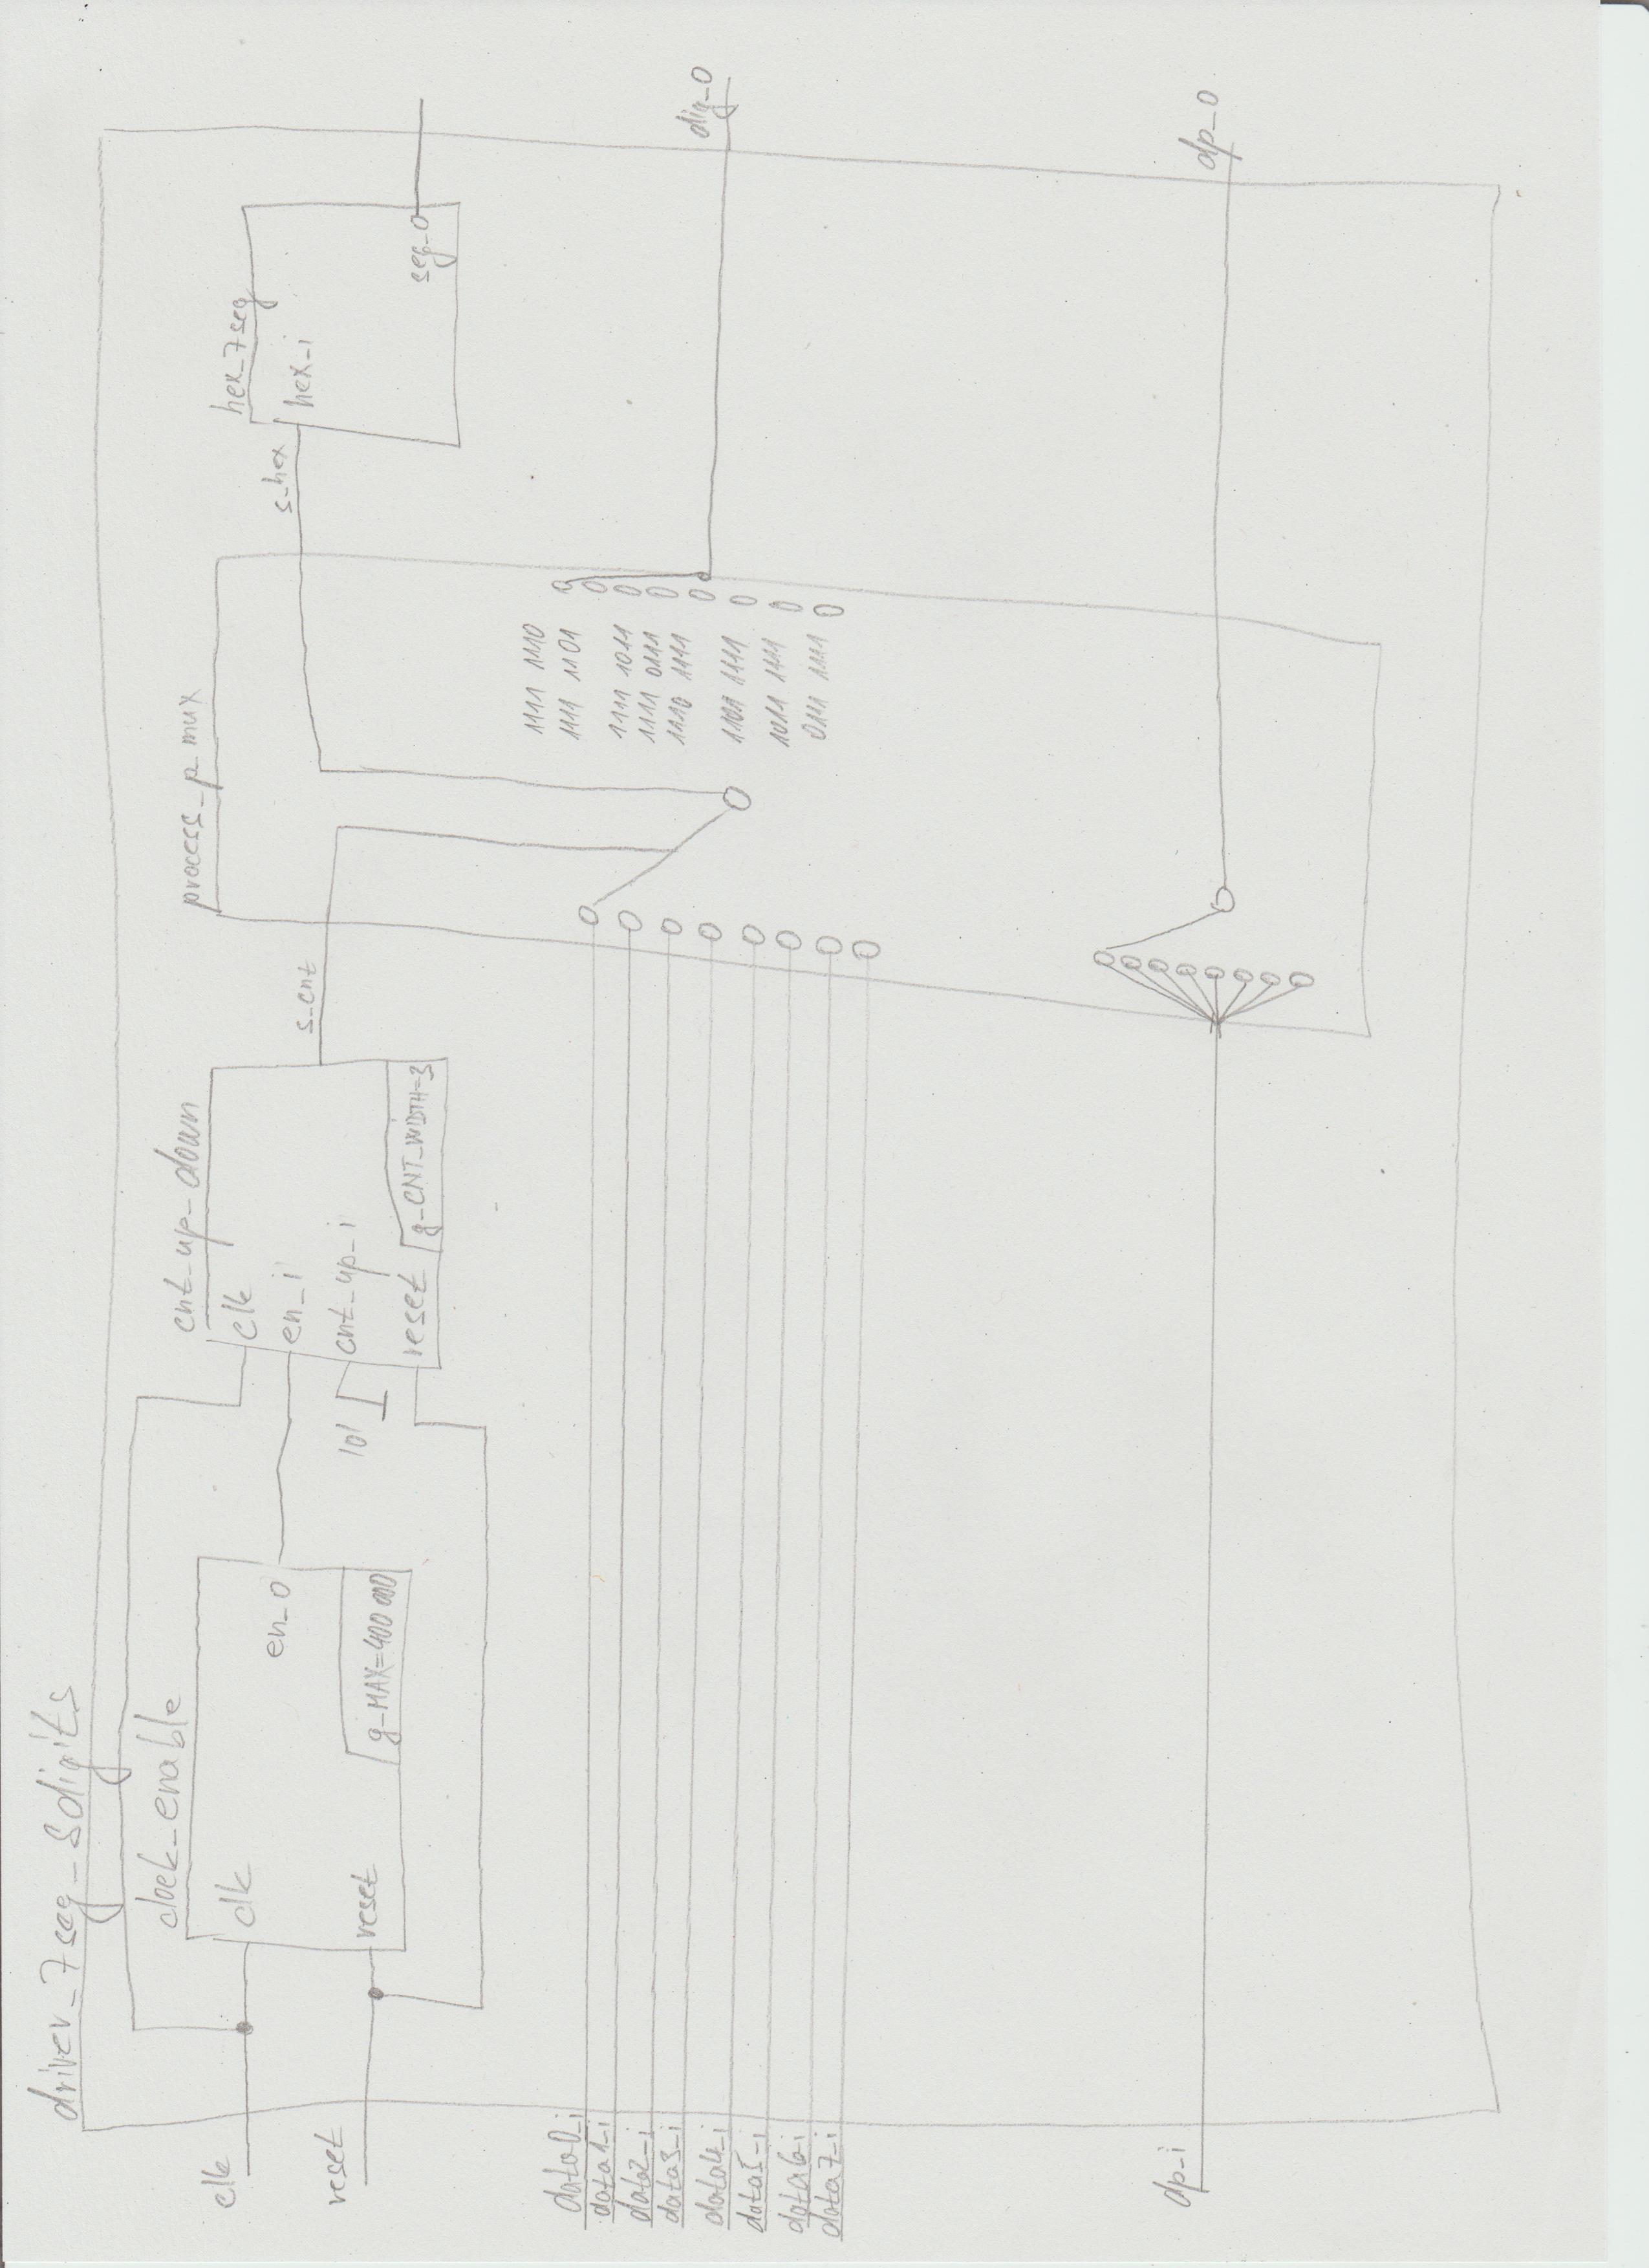 driver_7seg_8digits
clock_enable
clk
clk
en_o
reset
reset
g_MAX=400 000
cnt_up_down
clk
en_i
'0'
cnt_up_i
reset
g_CNT_WIDTH=3
s_cnt
process_p_mux
s_hex
hex_7seg
hex_i
seg_o
data0_i
data1_i
data2_i
data3_i
data4_i
data5_i
data6_i
data7_i
1111 1110
1111 1101
1111 1011
1111 0111
1110 1111
1101 1111
1011 1111
0111 1111
dig_o
dp_i
dp_o